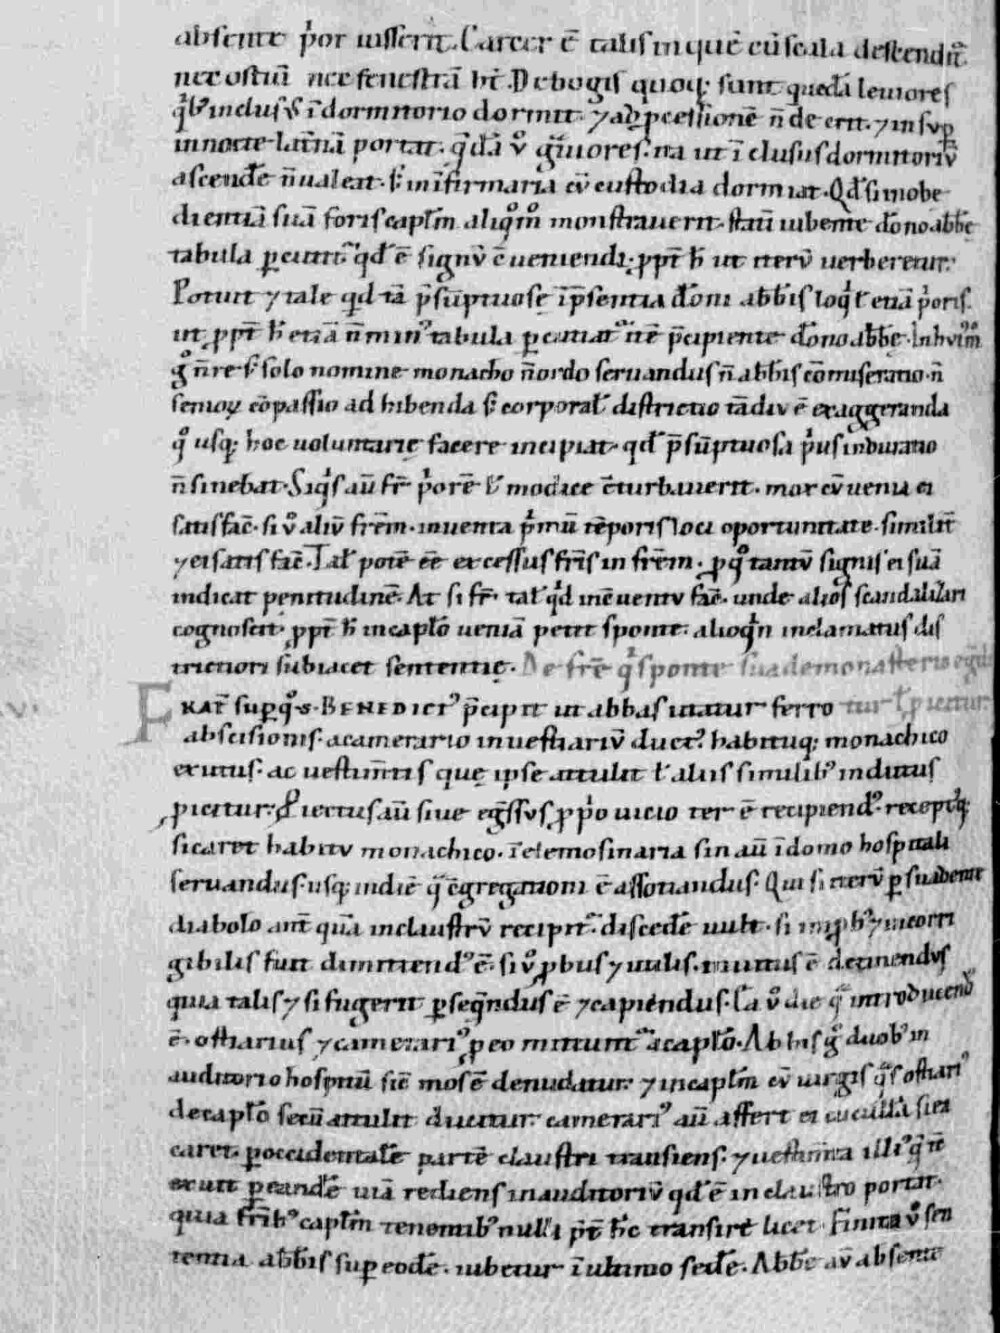 absente p̾or iusserit. Carcer ē talis in quē cū scala descendit̃
nec ostiū nec fenestrā ht̄. De bogis quoq; sunt quedā leuiores
q̾b; inclusꝰ ī dormitorio dormit. ⁊ ad ꝓcessionē n̄ deerit. ⁊ in suꝑ
in nocte lat̄nā portat. q̄dā v̊ g̾uiores. ita ut ī clusus dormitoriū
ascendē n̄ ualeat. s; in ī firmaria cū custodia dormiat. Qd̄ si inobe
dientiā suā foris capl̄m aliq̊m̊ monstrauerit. statī iubente dōno abb̄e
tabula ꝑcutit̃ qd̄ ē signū cueniendi. ꝓpt̄ h̄ ut iterū uerberetur.
Potuit ⁊ tale qd̄ tā p̄sūptuose ī p̄sentia dōni abb̄is loq̾ l̄ etiā p̾oris.
ut ꝓpt̄ h̄ etiā n̄ minꝰ tabula ꝑcutiat̃ itē p̄cipiente dōno abb̄e. In huīꝰm̊
g̊ n̄ re s; solo nomine monacho n̄ ordo seruandus n̄ abb̄is cōmiseratio. n̄
senioꝝ cōpassio adhibenda s; corporal̄ districtio tādiu ē exaggeranda
q̊ usq; hoc uoluntarie facere incipiat. qd̄ p̄sūptuosa p̾us induratio
n̄ sinebat. Siq̾s aū fr̄ p̾orē l̄ modice cturbauerit. mox cū uenia ei
satisfac̄. si v̊ aliū frēm. inuenta p̾mū tēporis loci oportunitate. similit̄
⁊ ei satisfac̄. Tal̄ potē eē excessus fr̄is in frēm. ꝓ q̊ tantū signis ei suā
indicat penitudinē. At si fr̄. tal̄ qd̄ in cuentu fac̄. unde alios scandalizari
cognoscit. ꝓpt̄ h̄ in caplo ueniā petit sponte. alioq̾n inclamatus dis
trictiori subiacet sententie. De fr̄e q̾ sponte sua de monasterio egredi
V. FRAT̄ suꝑ q̊ s. BENEDICTꝰ p̄cipit ut abbas utatur ferro tur l̄ ꝓicitur.
abscisionis. a camerario in uestiariū ductꝰ habituq; monachico
exutus. ac uestim̄tis que ipse attulit l̄ aliis similib; indutus
ꝓicitur. Eiectus aū siue eg̾ssus ꝓpo uicio ter ē recipiendꝰ. receptꝰq;
si caret habitu monachico. ī elemosinaria sin aū ī domo hospitali
seruandus. usq; in diē q̄ cgregationi ē assotiandus. Qui si iterū ꝑsuadente
diabolo ant̄ quā in claustrū recipit̃ discedē uult. si imꝓb; ⁊ incorri
gibilis fuit dimittendꝰ ē. si v̊ ꝓbus ⁊ utilis. inuitus ē detinendus
quia talis ⁊ si fugerit ꝑseq̄ndus ē ⁊ capiendus. Ea v̊ die q̄ introducendꝰ
ē. ostiarius ⁊ camerariꝰ ꝓ eo mittunt̃ a caplo. Ab his g̊ duob; in
auditorio hospitū sic̄ mos ē denudatur. ⁊ in capl̄m cū uirgis q̄s ostiariꝰ
de caplo secū attulit ducitur. camerariꝰ aū affert ei cucullā si ea
caret. ꝑ occidentalē partē claustri transiens. ⁊ uestim̄ta illiꝰ q̄ tē
exuit ꝑ eandē uiā rediens in auditoriū qd̄ ē in claustro portat.
quia fr̄ib; capl̄m tenentib; nulli p̄t h̄c transire licet. Finita v̊ sen
tentia abb̄is suꝑ eodē. iubetur ī ultimo sedē. Abb̄e aū absente